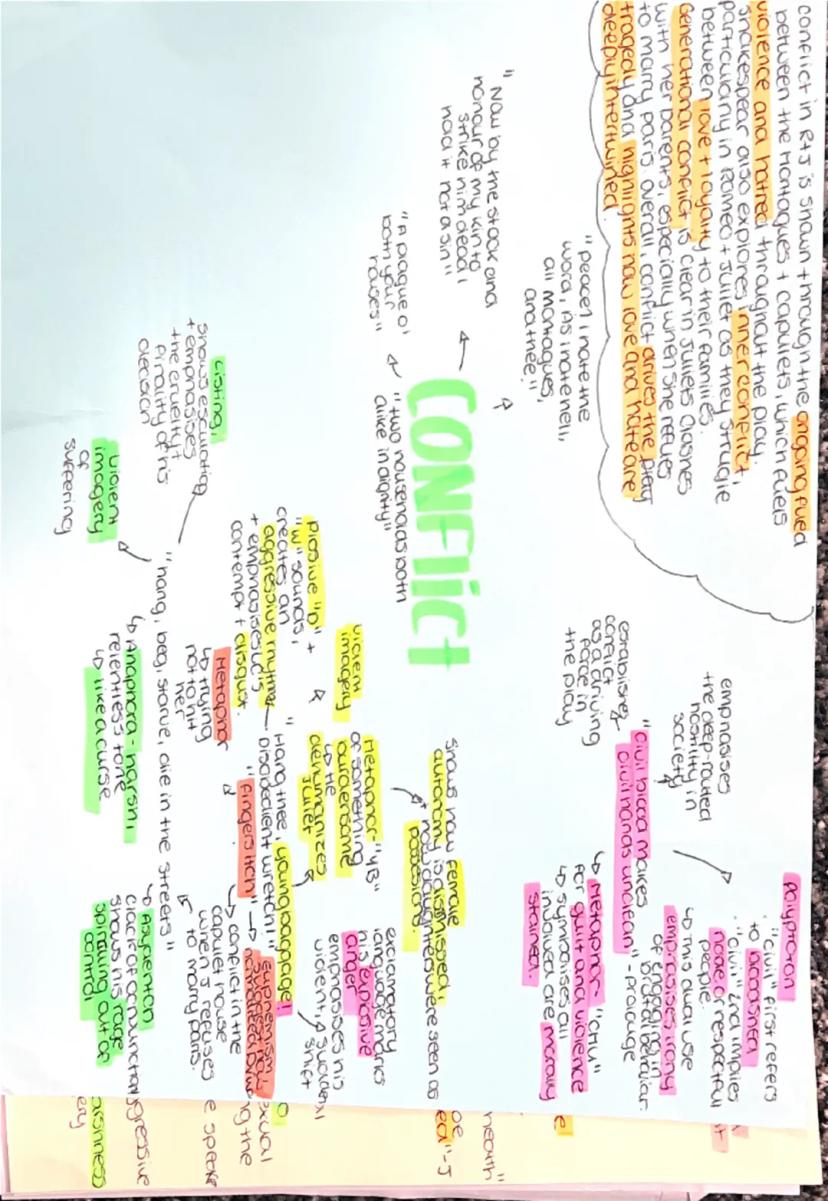 conflict in R+J is shown through the ongoing fued
between the Montagues + capulets, which fuels
violence and hatred throughout the play.
shakespear also explores inner conflict,
particularly in Romeo + Juliet as they struggle
between love + loyalty to their families.
Generational conflict is clear in Juliets clashes
with her parents, especially when she refuses
to marry paris. overall conflict drives the play
tragedy and highlights how love and hate are
deeply intertwined.
"peace! I hate the
word, As I hate hell,
all montagues,
and thee."
"Now by the stock and
honour of my kin to
strike him dead I
hold it not a sin"
"A plague o'
both your
houses"
CONflict
"two households both
alike in dignity"
emphasises
the deep-routed
hostility in
society
establishes
conflict
as a driving
force in
the play
"civil blood makes
civil hands unclean" - prologue
Polyptoton
"civil" first refers
to bloodshed
"civil" 2nd implies
noble or respectful
people.
↳ this dual use
emphasises irony
of engaging in
brutal behavior.
↳ Metaphor - "CHU"
for guilt and violence
↳ symbolises all
involved are morally
stained.
shows how female
autonomy is dismissed,
+ how daughters were seen as
possesions.
violent
imagery
Metaphor- "YB"
of something
burdensome
↳ He
dehumanizes
Juliet
exclamatory
language marks
his explosive
anger
emphasises his
violent, sudden
shift
Plosive "D" +
"W" sounds,
creates an
aggressive rhythm
+ emphasises LC's
contempt + disgust.
"Hang thee, young baggage!
Disobedient wretch!"
Metaphor
↳ trying
not to hit
her
"Fingers itch"
→ Euphemism
↳ conflict in the
capulet house
when J refuses
to marry paris.
"hang, beg, starve, die in the streets"
Listing,
shows escalation
+ emphasises
the cruelty +
finality of his
decision
violent
imagery
of
suffering
↳ Anaphora - harsh,
relentless tone
↳ like a curse
↳ Asyndeton
(lack of conjunctions)
shows his rage
spiralling out of
control